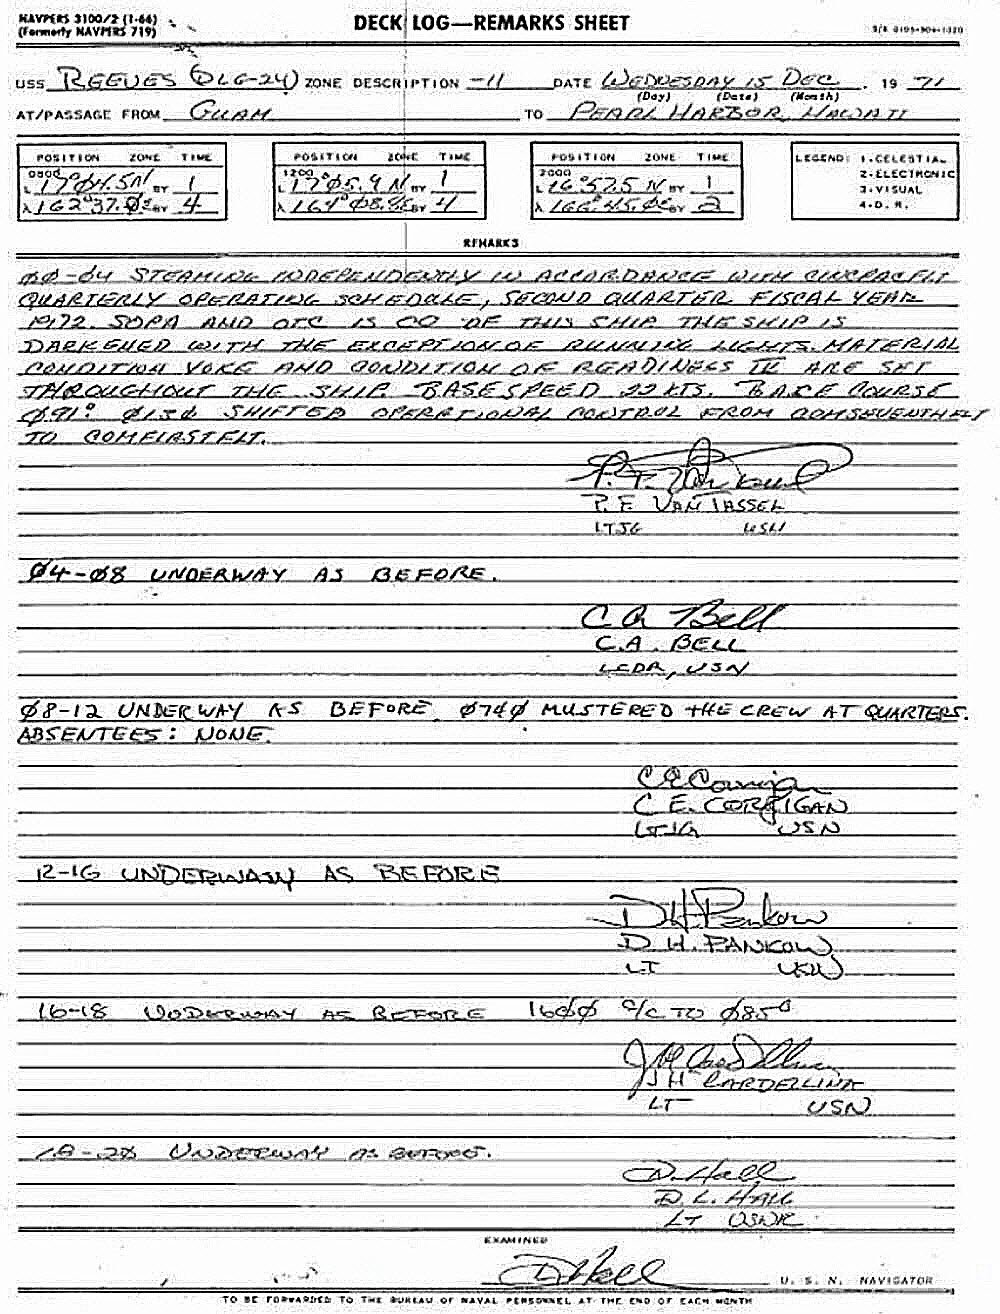 NAVPERS 3100/2 (1-66)
(Formerly NAVPERS 719)
DECK LOG—REMARKS SHEET
S/N 0105-904-1320
USS REEVES (DLG-24) ZONE DESCRIPTION -11 DATE WEDNESDAY 15 DEC. 19 71
(Day) (Date) (Month)
AT/PASSAGE FROM GUAM TO PEARL HARBOR, HAWAII
POSITION ZONE TIME
0800
L 17°04.5N BY 1
λ 162°37.0E BY 4
POSITION ZONE TIME
1200
L 17°05.9N BY 1
λ 164°08.8E BY 4
POSITION ZONE TIME
2000
L 16°57.5N BY 1
λ 166°45.0E BY 2
LEGEND: 1-CELESTIAL
2-ELECTRONIC
3-VISUAL
4-D.R.
REMARKS
00-04 STEAMING INDEPENDENTLY IN ACCORDANCE WITH CINCPACFLT
QUARTERLY OPERATING SCHEDULE, SECOND QUARTER FISCAL YEAR
1972. SOPA AND OTC IS CO OF THIS SHIP. THE SHIP IS
DARKENED WITH THE EXCEPTION OF RUNNING LIGHTS. MATERIAL
CONDITION YOKE AND CONDITION OF READINESS IV ARE SET
THROUGHOUT THE SHIP. BASE SPEED 22 KTS. BASE COURSE
091° 0130 SHIFTED OPERATIONAL CONTROL FROM COMSEVENTHFLT
TO COMFIRSTFLT.
P. F. VAN TASSEL
LTJG USN
04-08 UNDERWAY AS BEFORE.
C A Bell
C.A. BELL
LCDR, USN
08-12 UNDERWAY AS BEFORE. 0740 MUSTERED THE CREW AT QUARTERS.
ABSENTEES: NONE.
C E Corrigan
C. E. CORRIGAN
LTJG USN
12-16 UNDERWAY AS BEFORE
D H Pankow
D. H. PANKOW
LT USN
16-18 UNDERWAY AS BEFORE 1600 C/C TO 085°
J H CARDELLINA
LT USN
18-20 UNDERWAY AS BEFORE.
D. Hall
D. L. HALL
LT USNR
EXAMINED
D Hall
U. S. N. NAVIGATOR
TO BE FORWARDED TO THE BUREAU OF NAVAL PERSONNEL AT THE END OF EACH MONTH